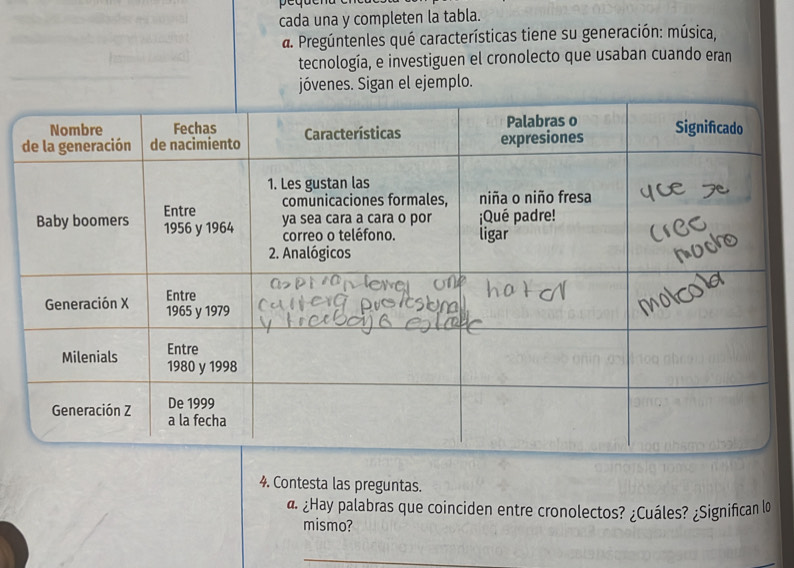 cada una y completen la tabla.
a. Pregúntenles qué características tiene su generación: música,
tecnología, e investiguen el cronolecto que usaban cuando eran
jóvenes. Sigan el ejemplo.
Nombre
de la generación
Fechas
de nacimiento
Características
Palabras o
expresiones
Significado
Baby boomers
Entre
1956 y 1964
1. Les gustan las
comunicaciones formales,
ya sea cara a cara o por
correo o teléfono.
2. Analógicos
niña o niño fresa
¡Qué padre!
ligar
se
cree
mucho
Generación X
Entre
1965 y 1979
una
y
Milenials
Entre
1980 y 1998
Generación Z
De 1999
a la fecha
4. Contesta las preguntas.
a. ¿Hay palabras que coinciden entre cronolectos? ¿Cuáles? ¿Significan lo
mismo?